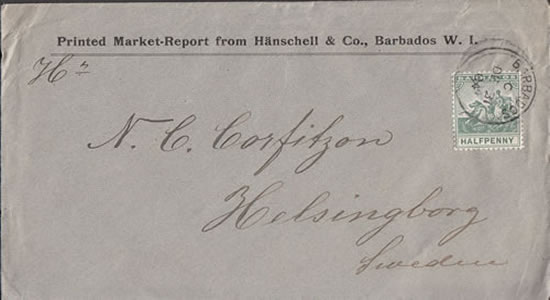 Printed Market-Report from Hänschell & Co., Barbados W. I.
Hrn
N. C. Corfitzon
Helsingborg
Sweden
BARBADOS
HALFPENNY